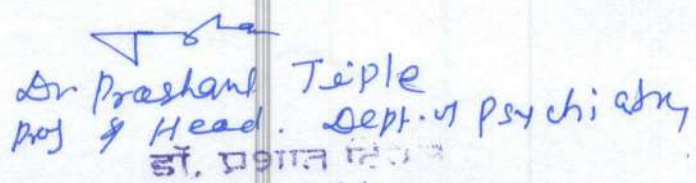 Dr Prashant Tiple
Prof & Head. Dept. of Psychiatry
डॉ. प्रशांत